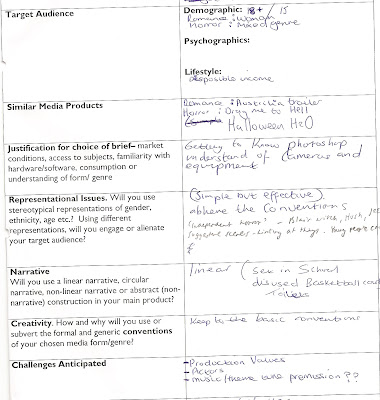 Target Audience
Demographic: 18+ / 15
Romance : Woman
Horror : Mixed genre
Psychographics:
Lifestyle:
disposible income
Similar Media Products
Romance : Australia trailer
Horror : Drag me to Hell
Halloween H2O
Justification for choice of brief– market
conditions, access to subjects, familiarity with
hardware/software, consumption or
understanding of form/ genre
Getting to know photoshop
understand of cameras and
equipment
Representational Issues. Will you use
stereotypical representations of gender,
ethnicity, age etc.? Using different
representations, will you engage or alienate
your target audience?
(Simple but effective).
the conventions
'independent horror' - Blair witch, Hush,
Suggestive scares - of things. Young people
Narrative
Will you use a linear narrative, circular
narrative, non-linear narrative or abstract (non-
narrative) construction in your main product?
linear (Set in School
disused Basketball court
Toilets
Creativity. How and why will you use or
subvert the formal and generic conventions
of your chosen media form/genre?
Keep to the basic conventions
Challenges Anticipated
- Production Values
- Actors
- music/theme tune permission ??